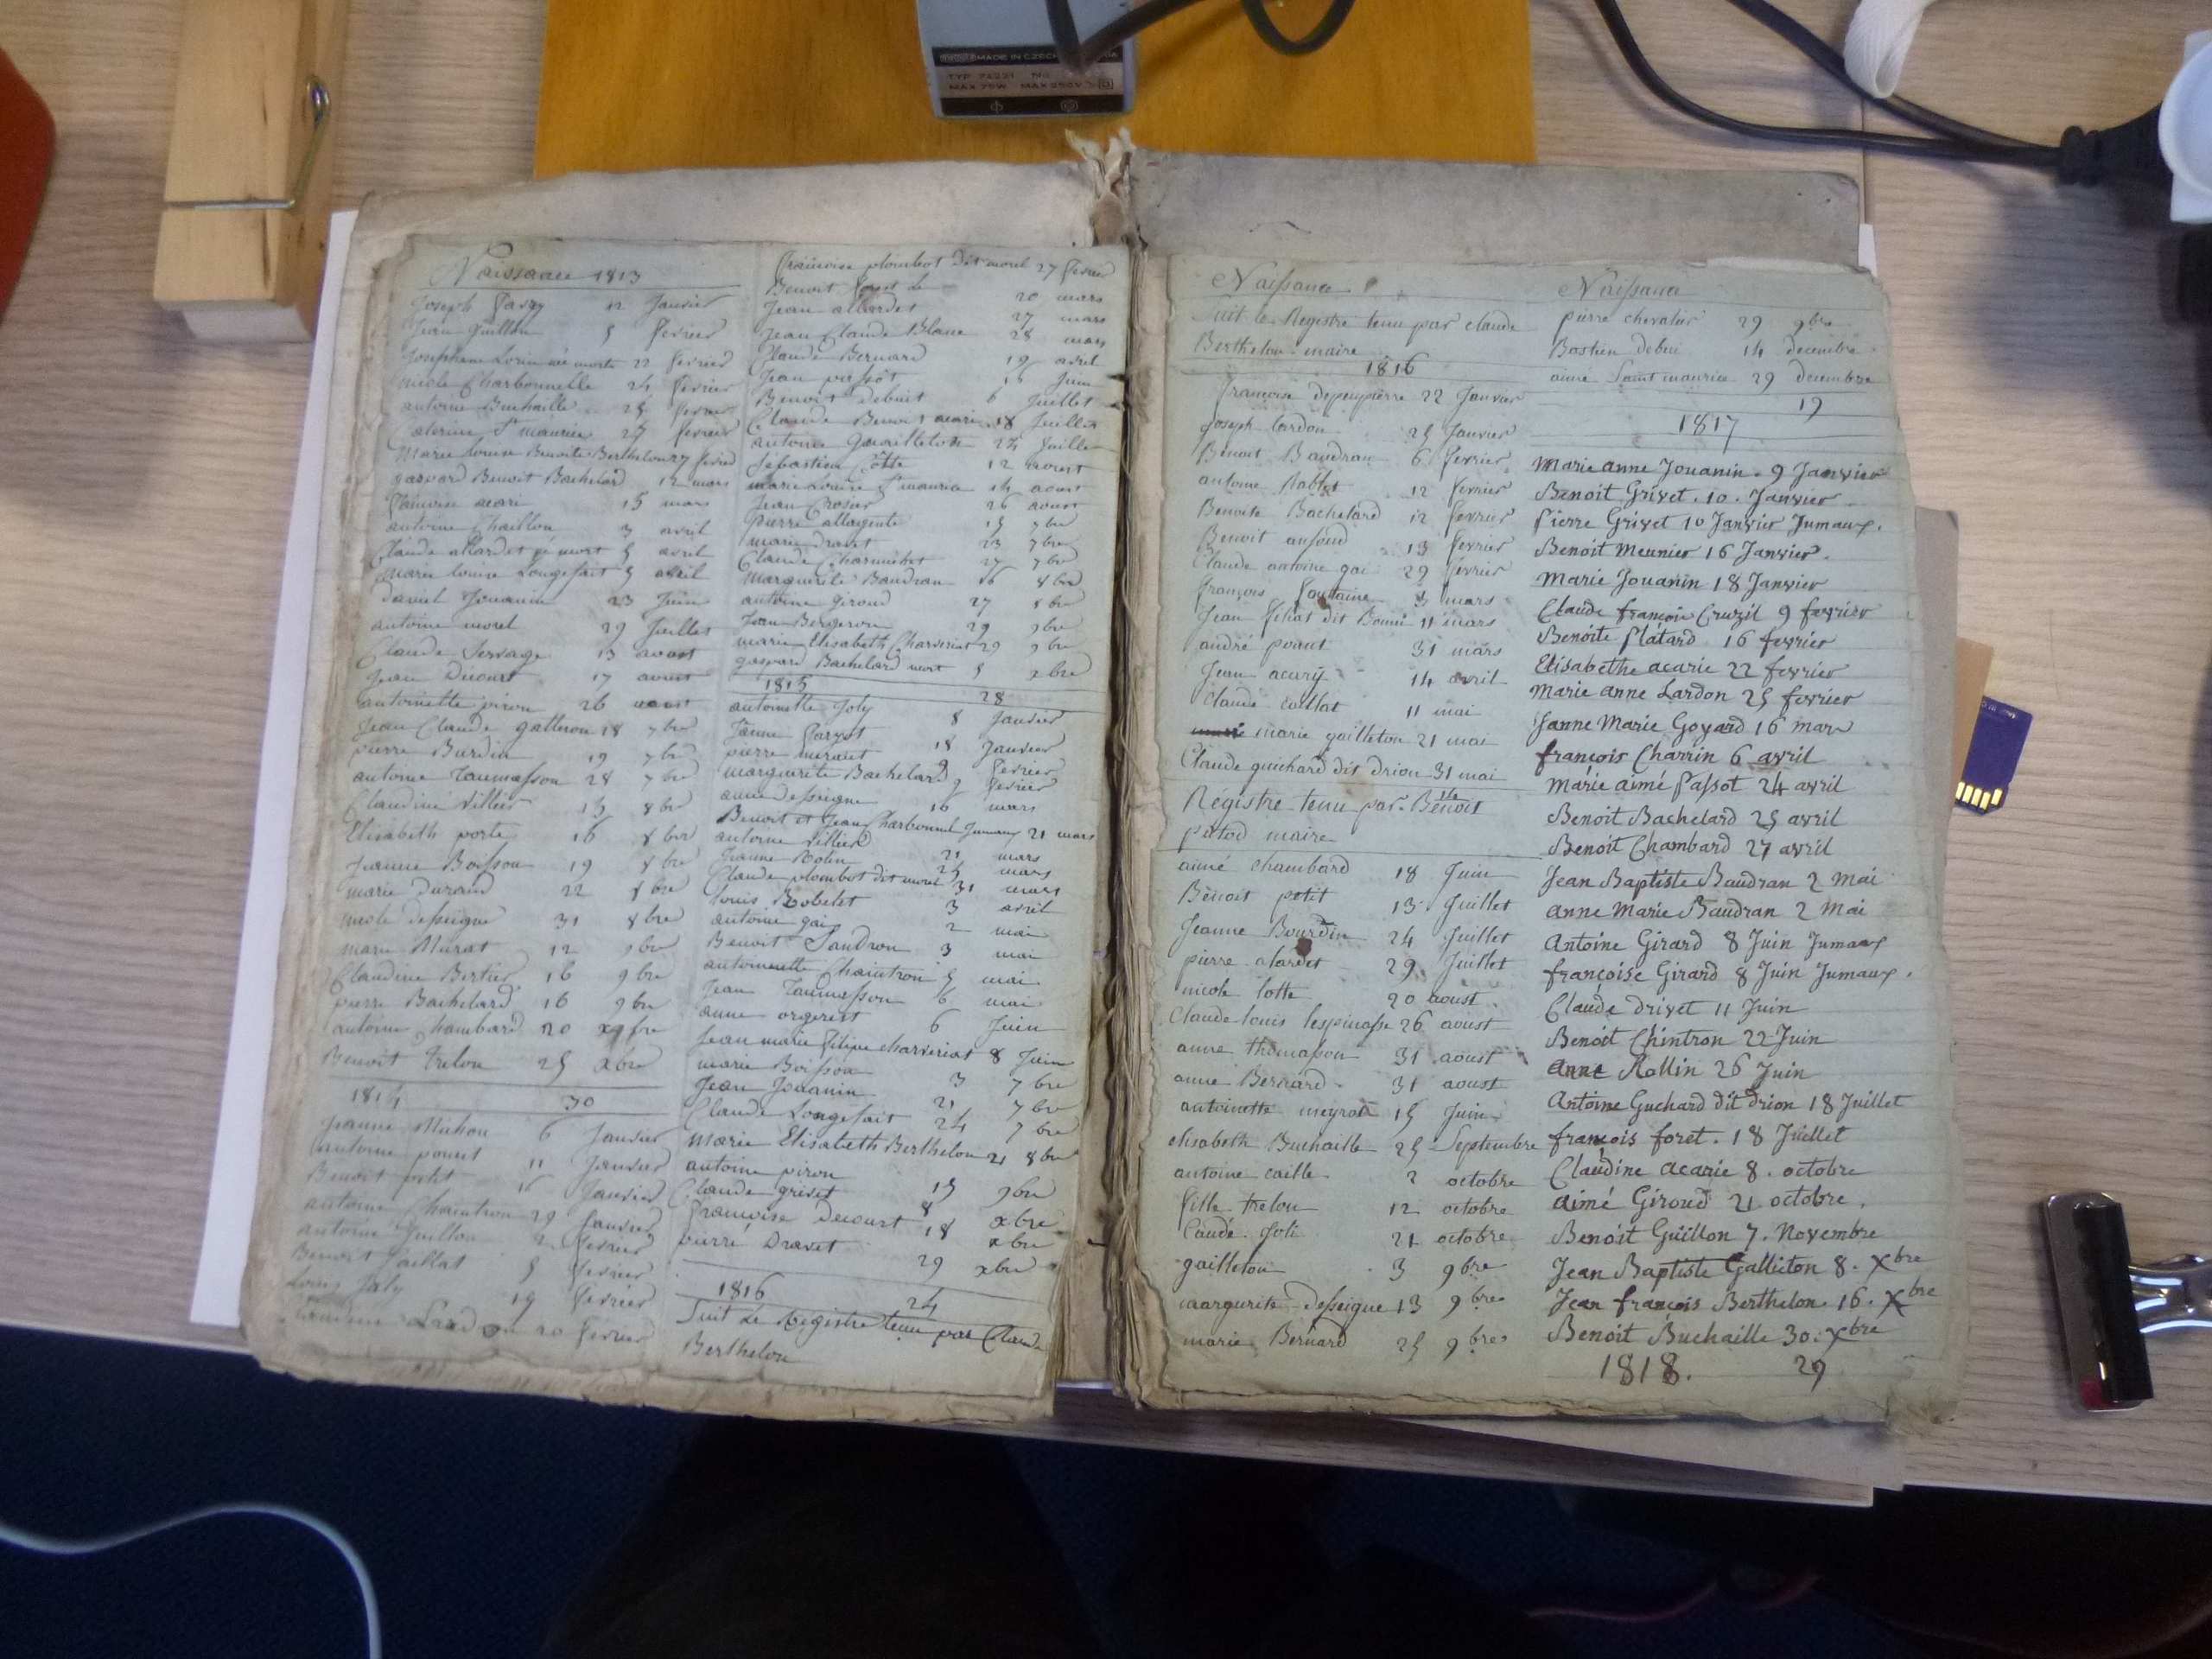 MADE IN CZECH
TYP
MAX 75W MAX 250V
Naissance 1813
Joseph 12 Janvier
Jean Guillon 5 fevrier
22 fevrier
nicole Charbonnelle 24 fevrier
antoine Buchaille 25 fevrier
Caterine St maurice 27 fevrier
Marie Louise Benoite Berthelon 27 fevrier
gaspard Benoit Bachelard 12 mars
15 mars
antoine Chaillon 3 avril
Claude allardet né mort 5 avril
marie louise Longefait 5 avril
Daniel Jouanin 23 Juin
antoine morel 29 Juillet
Claude Servage 13 aoust
Jean Ducourt 17 aoust
antoinette piron 26 aoust
Jean Claude galleton 18 7bre
pierre Burdin 19 7bre
antoine Taumasson 28 7bre
Claudine Villier 13 8bre
Elisabeth porte 16 8bre
Jeanne Boisson 19 8bre
marie Durand 22 8bre
nicole dessaigne 31 8bre
marie Murat 12 9bre
Claudine Bertier 16 9bre
pierre Bachelard 16 9bre
antoine Chambard 20
Benoit trelon 25 xbre
1814 30
Jeanne Michon 6 Janvier
antoine 11 Janvier
Benoit petit 16 Janvier
antoine Chaintron 29 Janvier
antoine Guillon 2 fevrier
Benoit Caillat 5 fevrier
Louis Joly 19 fevrier
20 fevrier
francoise plombot dit morel 27 fevrier
Benoit 20 mars
Jean allardet 27 mars
Jean Claude Blanc 28 mars
Claude Bernard 19 avril
Jean 16 Juin
Benoit Debuit 6 Juillet
Claude Benoit acarie 18 Juillet
antoine Gaailleton 24 Juillet
Sébastien Cotte 12 aoust
marie Louise St maurice 14 aoust
Jean Crosier 26 aoust
pierre allargente 15 7bre
marie Dravet 23 7bre
Claude 27 7bre
Marguerite Baudran 16 8bre
antoine Giroud 27 8bre
Jean Bergeron 29 9bre
marie Elisabeth Charveriat 29 9bre
gaspard Bachelard mort 5 xbre
1815 28
antoinette Joly 8 Janvier
Janne 18 Janvier
pierre 9 fevrier
marguerite Bachelard fevrier
anne dessaigne 16 mars
Benoit et Jean Charbonnel Jumeaux 21 mars
antoine Villier 21 mars
Jeanne Rolin 25 mars
Claude plombot dit morel 31 mars
Louis Bobelet 3 avril
antoine gai 2 mai
Benoit Sandron 3 mai
antoinette Chaintron 5 mai
Jean Taumasson 6 mai
anne orgerest 6 Juin
Jean marie filipe charveriat 8 Juin
marie Boisson 3 7bre
Jean Jouanin 21 7bre
Claude Longefait 24 7bre
Marie Elisabeth Berthelon 21 8bre
antoine piron 15 9bre
Claude grivet 8 xbre
françoise Decourt 18 xbre
pierre Dravet 29 xbre
1816 24
Suit Le Registre tenu par Claude
Berthelon
Naissance
Suit le Registre tenu par claude
Berthelon maire
1816
françoise depeupierre 22 Janvier
Joseph lardon 25 Janvier
Benoit Baudran 6 fevrier
antoine Rablet 12 fevrier
Benoite Bachelard 12 fevrier
Benoit 13 fevrier
Claude antoine gai 29 fevrier
françois fontaine 3 mars
Jean dit 11 mars
andré 31 mars
Jean acary 14 avril
Claude caillat 11 mai
marie gailleton 21 mai
Claude guichard dit Drion 31 mai
Régistre tenu par Benoit
maire
aimé chambard 18 Juin
Benoit petit 13 Juillet
Jeanne Bourdin 24 Juillet
pierre alardet 29 Juillet
nicole lotte 20 aoust
Claude louis lespinasse 26 aoust
anne thomasson 31 aoust
anne Bernard 31 aoust
antoinette meyrat 15 Juin
elisabeth Buchaille 25 Septembre
antoine caille 2 octobre
fille trelon 12 octobre
Claude Joli 21 octobre
gailleton 3 9bre
margurite dessaigne 13 9bre
marie Bernard 25 9bre
Naissance
pierre chevalier 29 9bre
Bastien debui 14 decembre
aimé Saint maurice 29 decembre
19
1817
Marie anne Jouanin. 9 Janvier
Benoit Grivet. 10. Janvier
Pierre Grivet 10 Janvier Jumaux.
Benoit Meunier 16 Janvier.
Marie Jouanin 18 Janvier
Claude françois Cruzil 9 fevrier
Benoite Platard 16 fevrier
Elisabethe acarie 22 fevrier
Marie anne Lardon 25 fevrier
Janne Marie Goyard 16 mars
françois Charrin 6 avril
Marie aimé Passot 24 avril
Benoit Bachelard 25 avril
Benoit Chambard 27 avril
Jean Baptiste Baudran 2 Mai
anne Marie Baudran 2 Mai
Antoine Girard 8 Juin Jumaux
françoise Girard 8 Juin Jumaux.
Claude drivet 11 Juin
Benoit Chintron 22 Juin
anne Rollin 26 Juin
Antoine Guchard dit drion 18 Juillet
françois foret. 18 Juillet
Claudine acarie 8. octobre
aimé Giroud 21 octobre.
Benoit Guillon 7. Novembre
Jean Baptiste Galliéton 8. Xbre
Jean françois Berthelon. 16. Xbre
Benoit Buchaille 30. Xbre
1818. 29